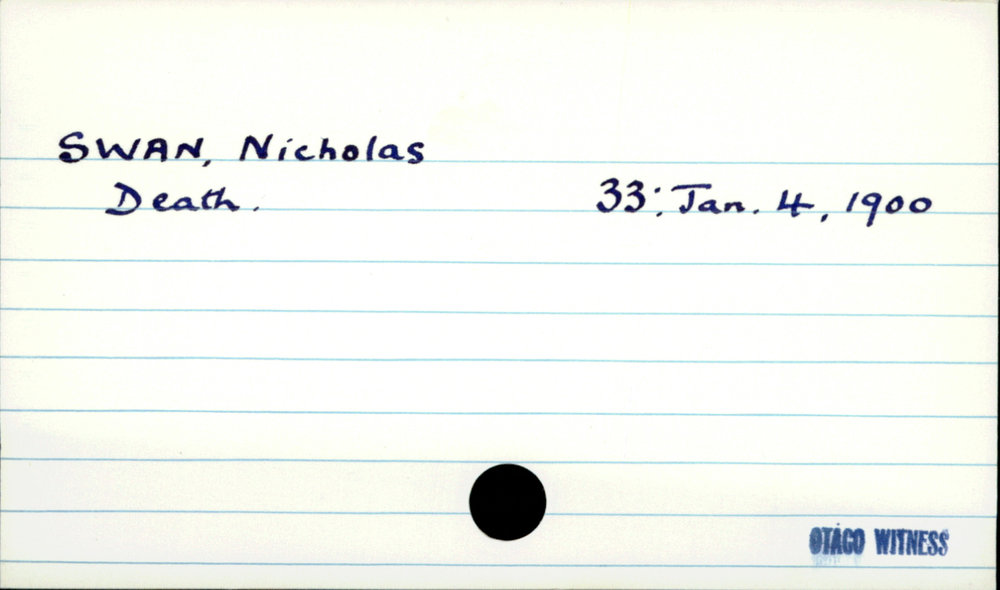 SWAN, Nicholas
Death. 33: Jan. 4, 1900
OTAGO WITNESS